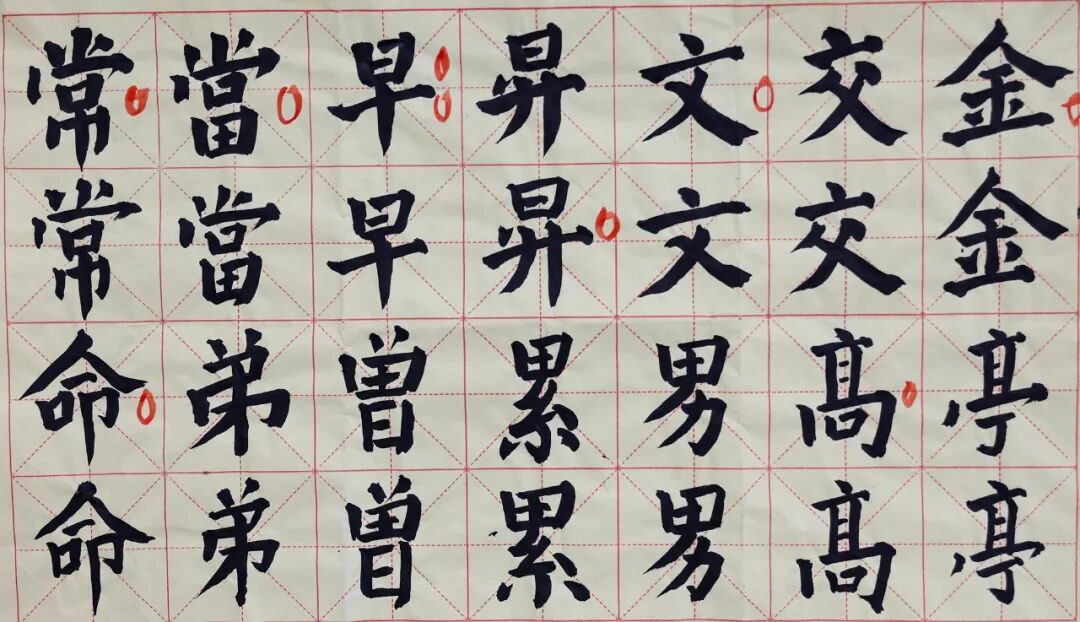 常當早昇文交金
常當早昇文交金
命弟曽累男髙亭
命弟曽累男髙亭